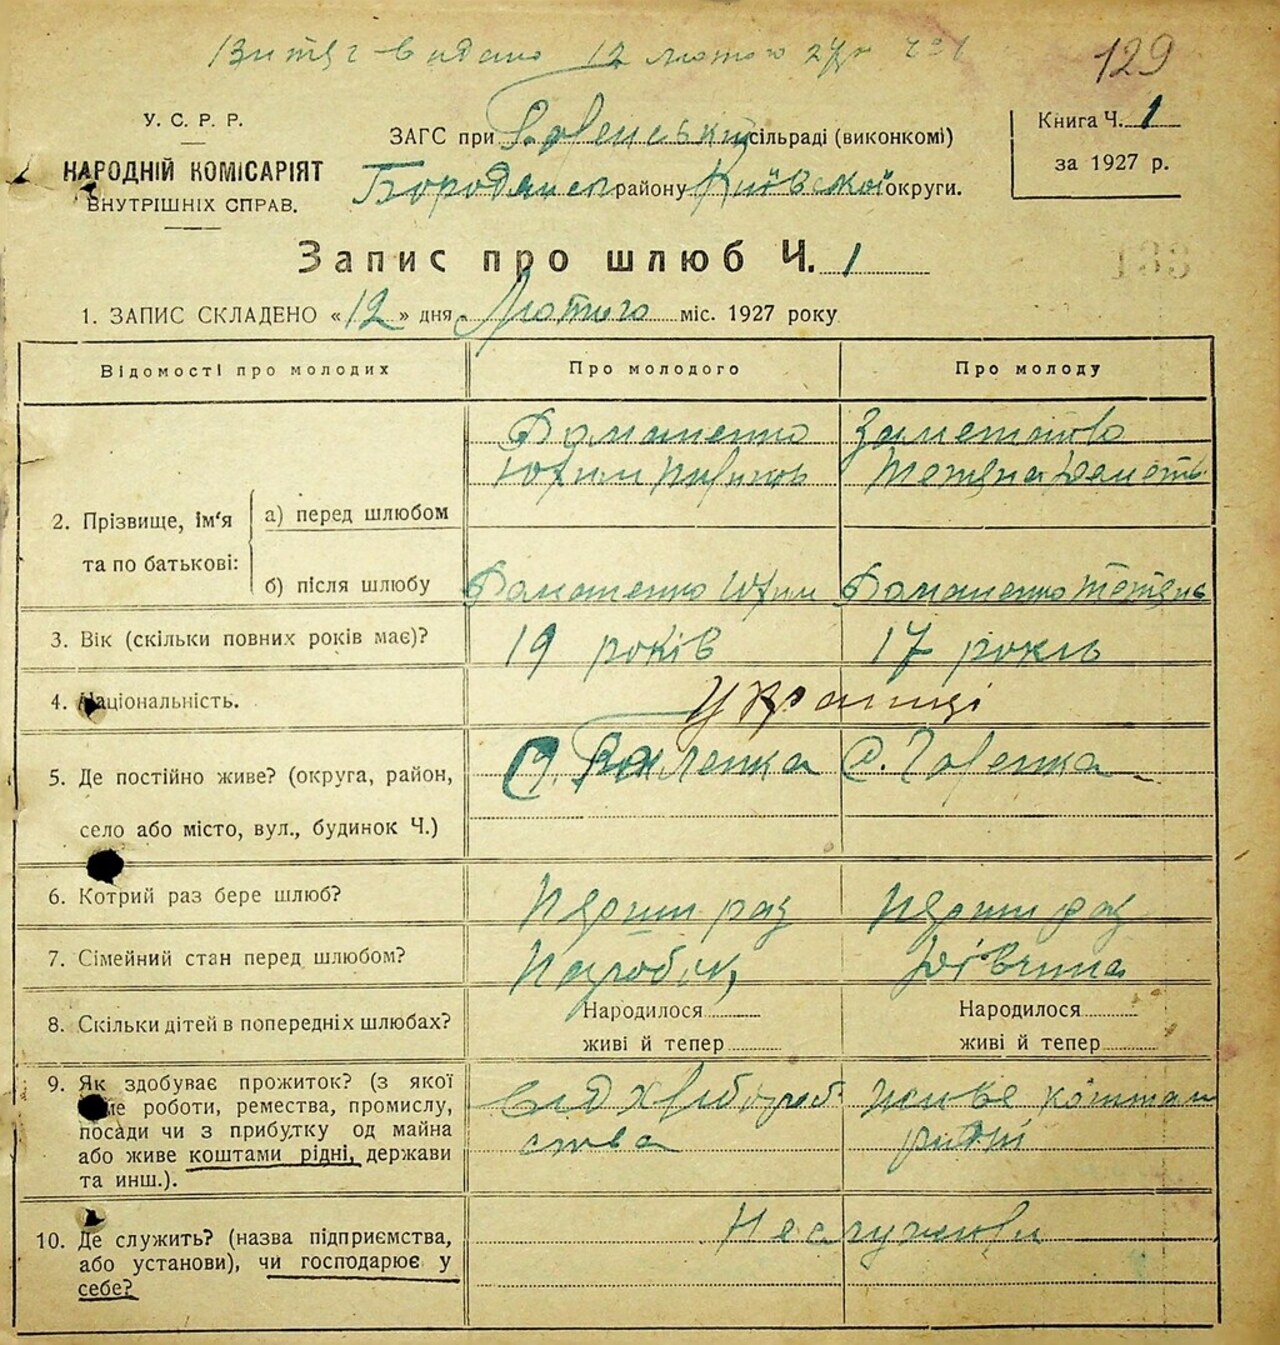 Витяг видано 12 лютого 27 р
129
У. С. Р. Р.
НАРОДНІЙ КОМІСАРІЯТ
ВНУТРІШНІХ СПРАВ.
ЗАГС при сільраді (виконкомі)
Бородянск району Київської округи.
Книга Ч. 1
за 1927 р.
Запис про шлюб Ч. 1
1. ЗАПИС СКЛАДЕНО «12» дня Лютого міс. 1927 року
Відомості про молодих
Про молодого
Про молоду
2. Прізвище, ім'я
та по батькові:
а) перед шлюбом
б) після шлюбу
Юхим
Тетяна
Юхим
3. Вік (скільки повних років має)?
19 років
17 років
4. Національність.
Українці
5. Де постійно живе? (округа, район,
село або місто, вул., будинок Ч.)
С.
С.
6. Котрий раз бере шлюб?
Перший раз
Перший раз
7. Сімейний стан перед шлюбом?
Паробок,
Дівчина
8. Скільки дітей в попередніх шлюбах?
Народилося
живі й тепер
Народилося
живі й тепер
9. Як здобуває прожиток? (з якої
саме роботи, ремества, промислу,
посади чи з прибутку од майна
або живе коштами рідні, держави
та инш.).
Від хлібороб
ства
живе коштам
рідні
10. Де служить? (назва підприємства,
або установи), чи господарює у
себе?
Не служили